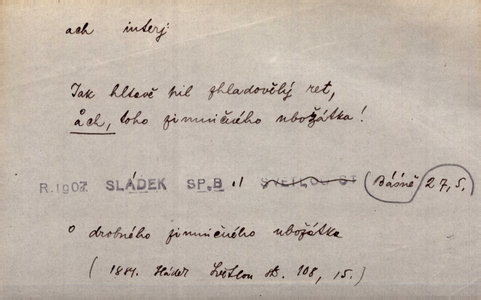 ach interj:
Jak hltavě pil zhladovělý ret,
ach, toho zimničného ubožátka!
R.1907 SLÁDEK SP.B .1 SVĚTLOU ST (Básně 27,5.
o drobného zimničného ubožátka
(1884. Sládek Světlou st. 108, 15.)